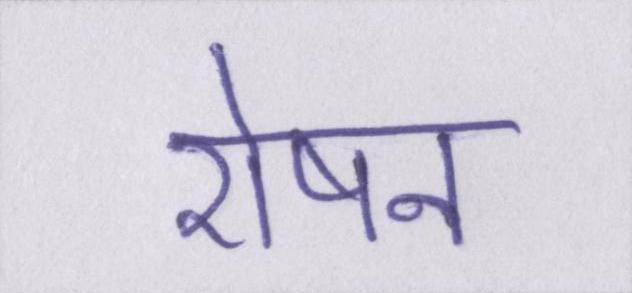 रोषन